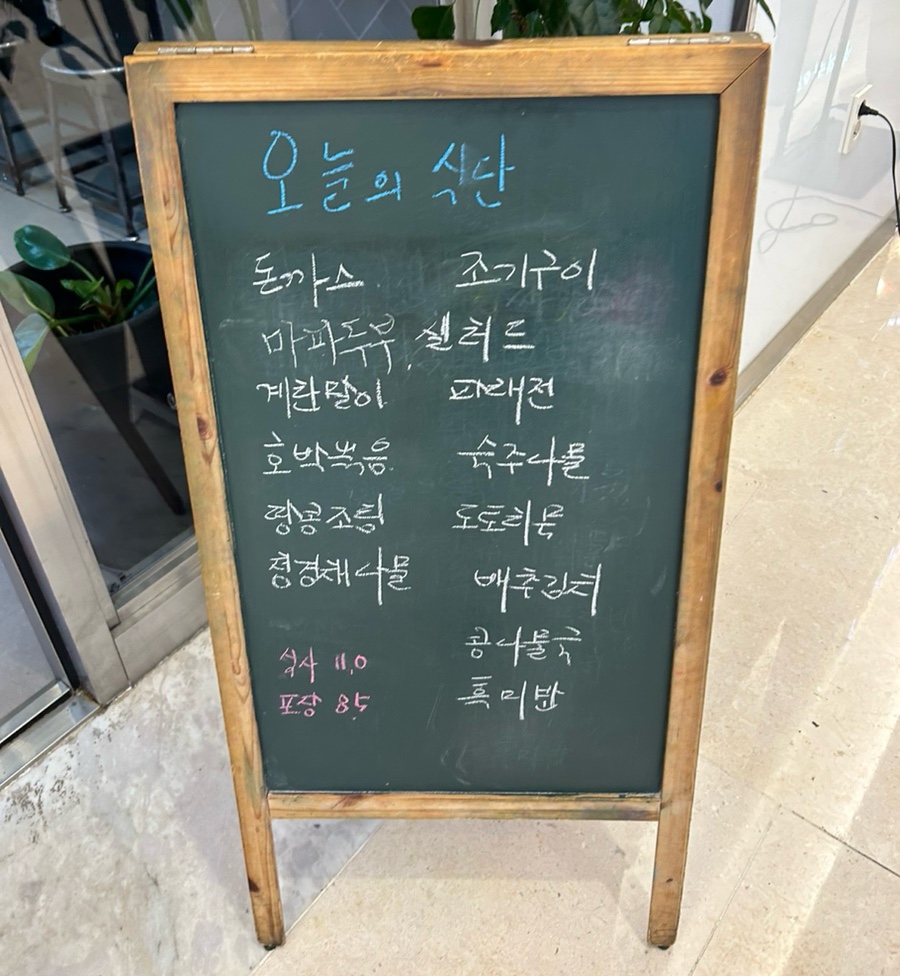 오늘의 식단
돈까스 조기구이
마파두부, 샐러드
계란말이 파래전
호박볶음 숙주나물
땅콩조림 도토리묵
청경채나물 배추김치
콩나물국
식사 11.0 흑미밥
포장 8.5